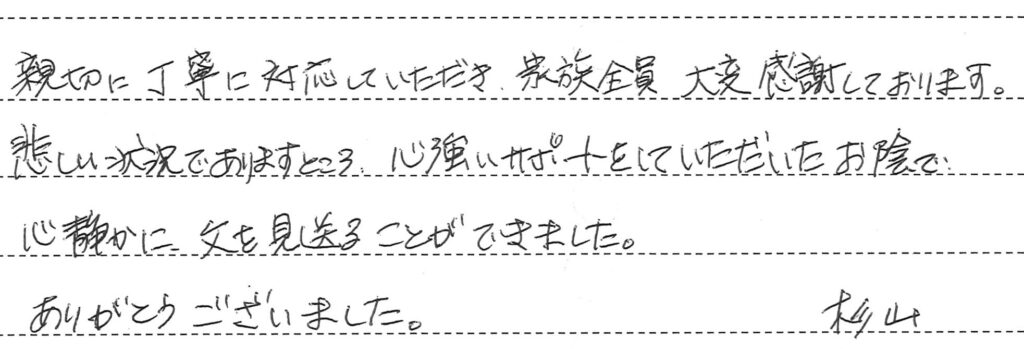 親切に丁寧に対応していただき、家族全員 大変感謝しております。
悲しい状況でありますところ、心強いサポートをしていただいたお陰で、
心静かに、父を見送ることができました。
ありがとうございました。 杉山